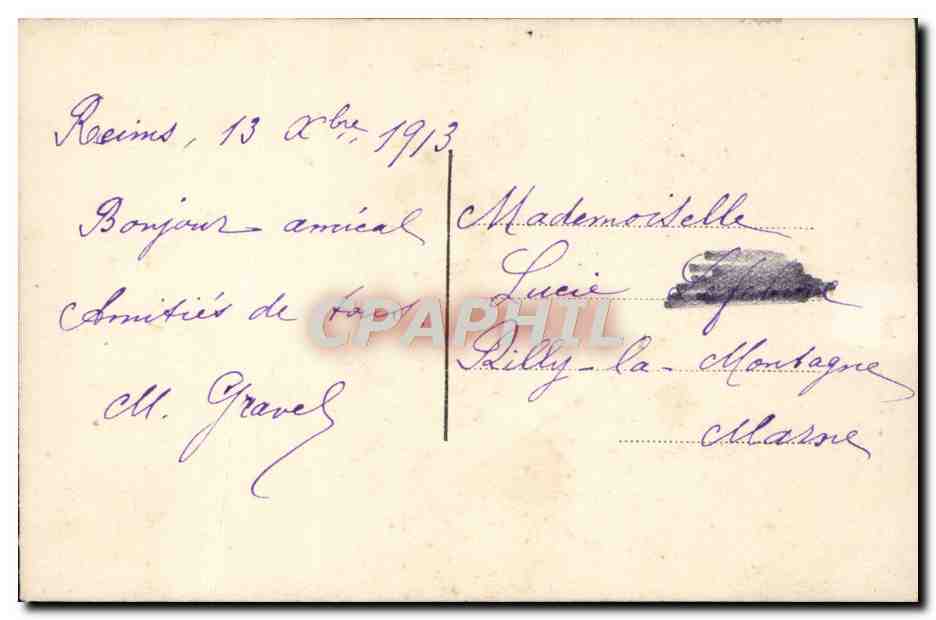 Reims, 13 Xbre 1913
Bonjour amical
Amitiés de tous
M. Gravel
Mademoiselle
Lucie
Rilly-la-Montagne
Marne
CPAPHIL